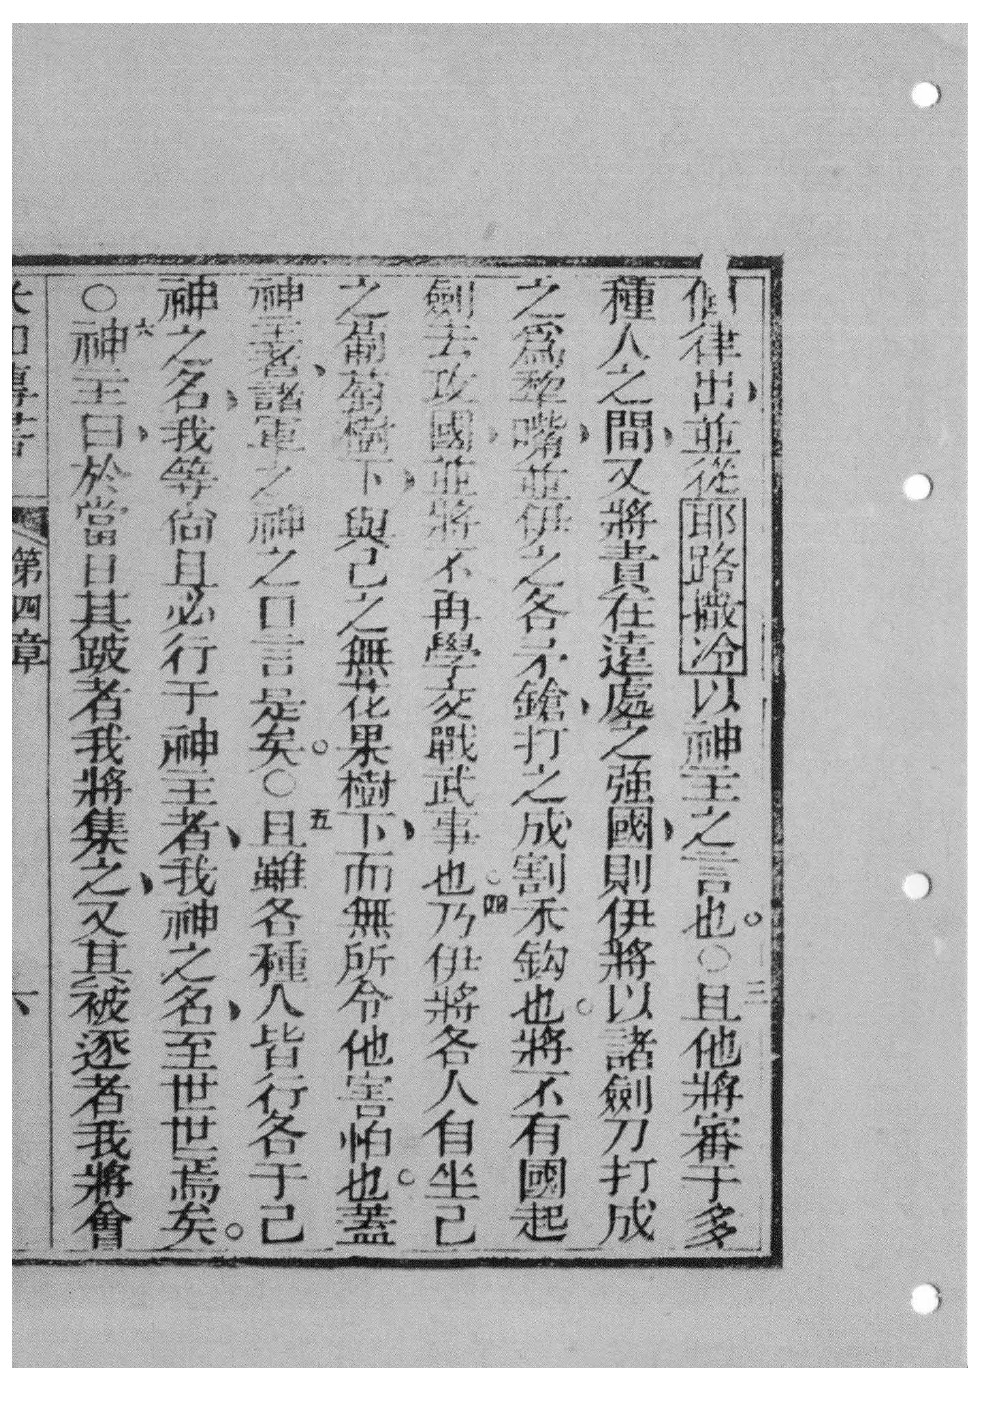 律出並從耶路撒冷以神主之言也。○三且他將審于多
種人之間、又將責在遠處之強國、則伊將以諸劍刀打成
之爲犂嘴、並伊之各矛鎗、打之成割禾鈎也。將不有國起
劍去攻國、並將不再學交戰武事也。四乃伊將各人自坐己
之葡萄樹下、與己之無花果樹下、而無所令他害怕也。蓋
神主者、諸軍之神之口言是矣。○五且雖各種人皆行各于己
神之名、我等尙且必行于神主者、我神之名、至世世焉矣。
○六神主曰、於當日其跛者我將集之、又其被逐者我將會
第四章 六